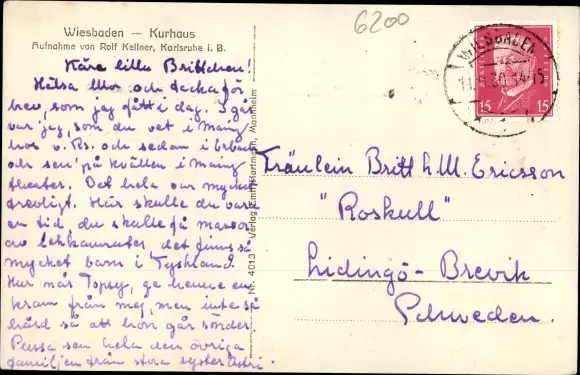 6200
Wiesbaden — Kurhaus
Aufnahme von Rolf Kellner, Karlsruhe i. B.
Kära lilla Brittchen!
Hälsa Mor och tacka för
brev, som jag fått i dag. I går
var jag, som du vet i Mainz
hos v. Rs. och sedan i Erbach
och sen' på kvällen i Mainz
theater. Det hela var mycket
trevligt. Här skulle du vara
en tid, du skulle få massor
av lekkamrater, det finns så
mycket barn i Tyskland.
Hur mår Topsy, ge henne en
kram från mej, men inte så
hård så att hon går sönder.
Pussa sen hela den övriga
familjen från stora syster Astri.
Nr. 4013 Verlag Emil Hartmann, Mannheim
WIESBADEN
30.14-15
15 15
Fräulein Britt h. M. Ericson
"Roskull"
Lidingö-Brevik
Schweden.